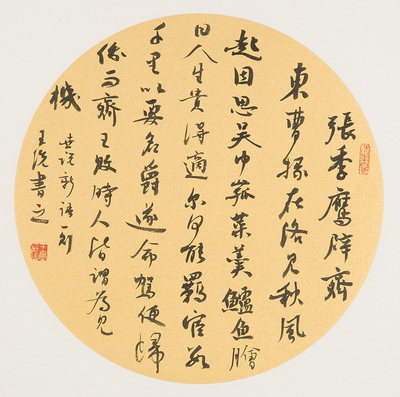 張季鷹辟齊
東曹掾在洛見秋風
起因思吳中菰菜羹鱸魚膾
曰人生貴得適尔何能羈宦數
千里以要名爵遂命駕便歸
俄而齊王敗時人皆謂為見
機
世說新語一則
王書之